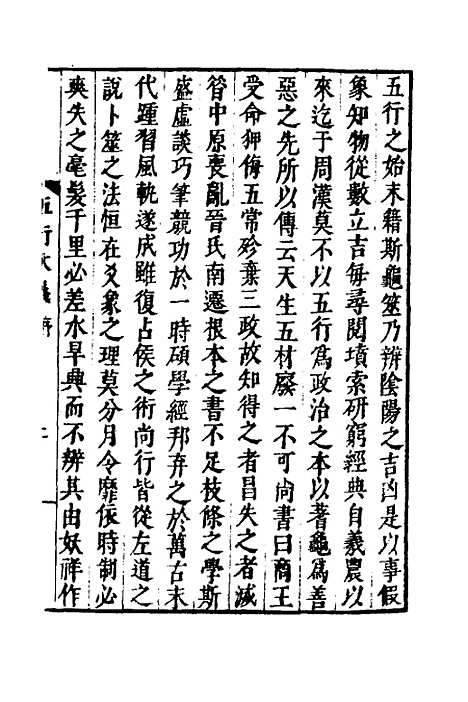 五行之始末藉斯龜筮乃辨陰陽之吉凶是以事假
象知物從數立吉每尋閱墳索研窮經典自羲農以
來迄于周漢莫不以五行爲政治之本以蓍龜爲善
惡之先所以傳云天生五材廢一不可尚書曰商王
受命狎侮五常殄棄三政故知得之者昌失之者滅
昔中原喪亂晉氏南遷根本之書不足枝條之學斯
盛虛談巧筆競功於一時碩學經邦弃之於萬古末
代踵習風軌遂成雖復占侯之術尚行皆從左道之
說卜筮之法恒在爻象之理莫分月令靡依時制必
爽失之毫髮千里必差水旱興而不辨其由妖祥作
五行大義 序 二